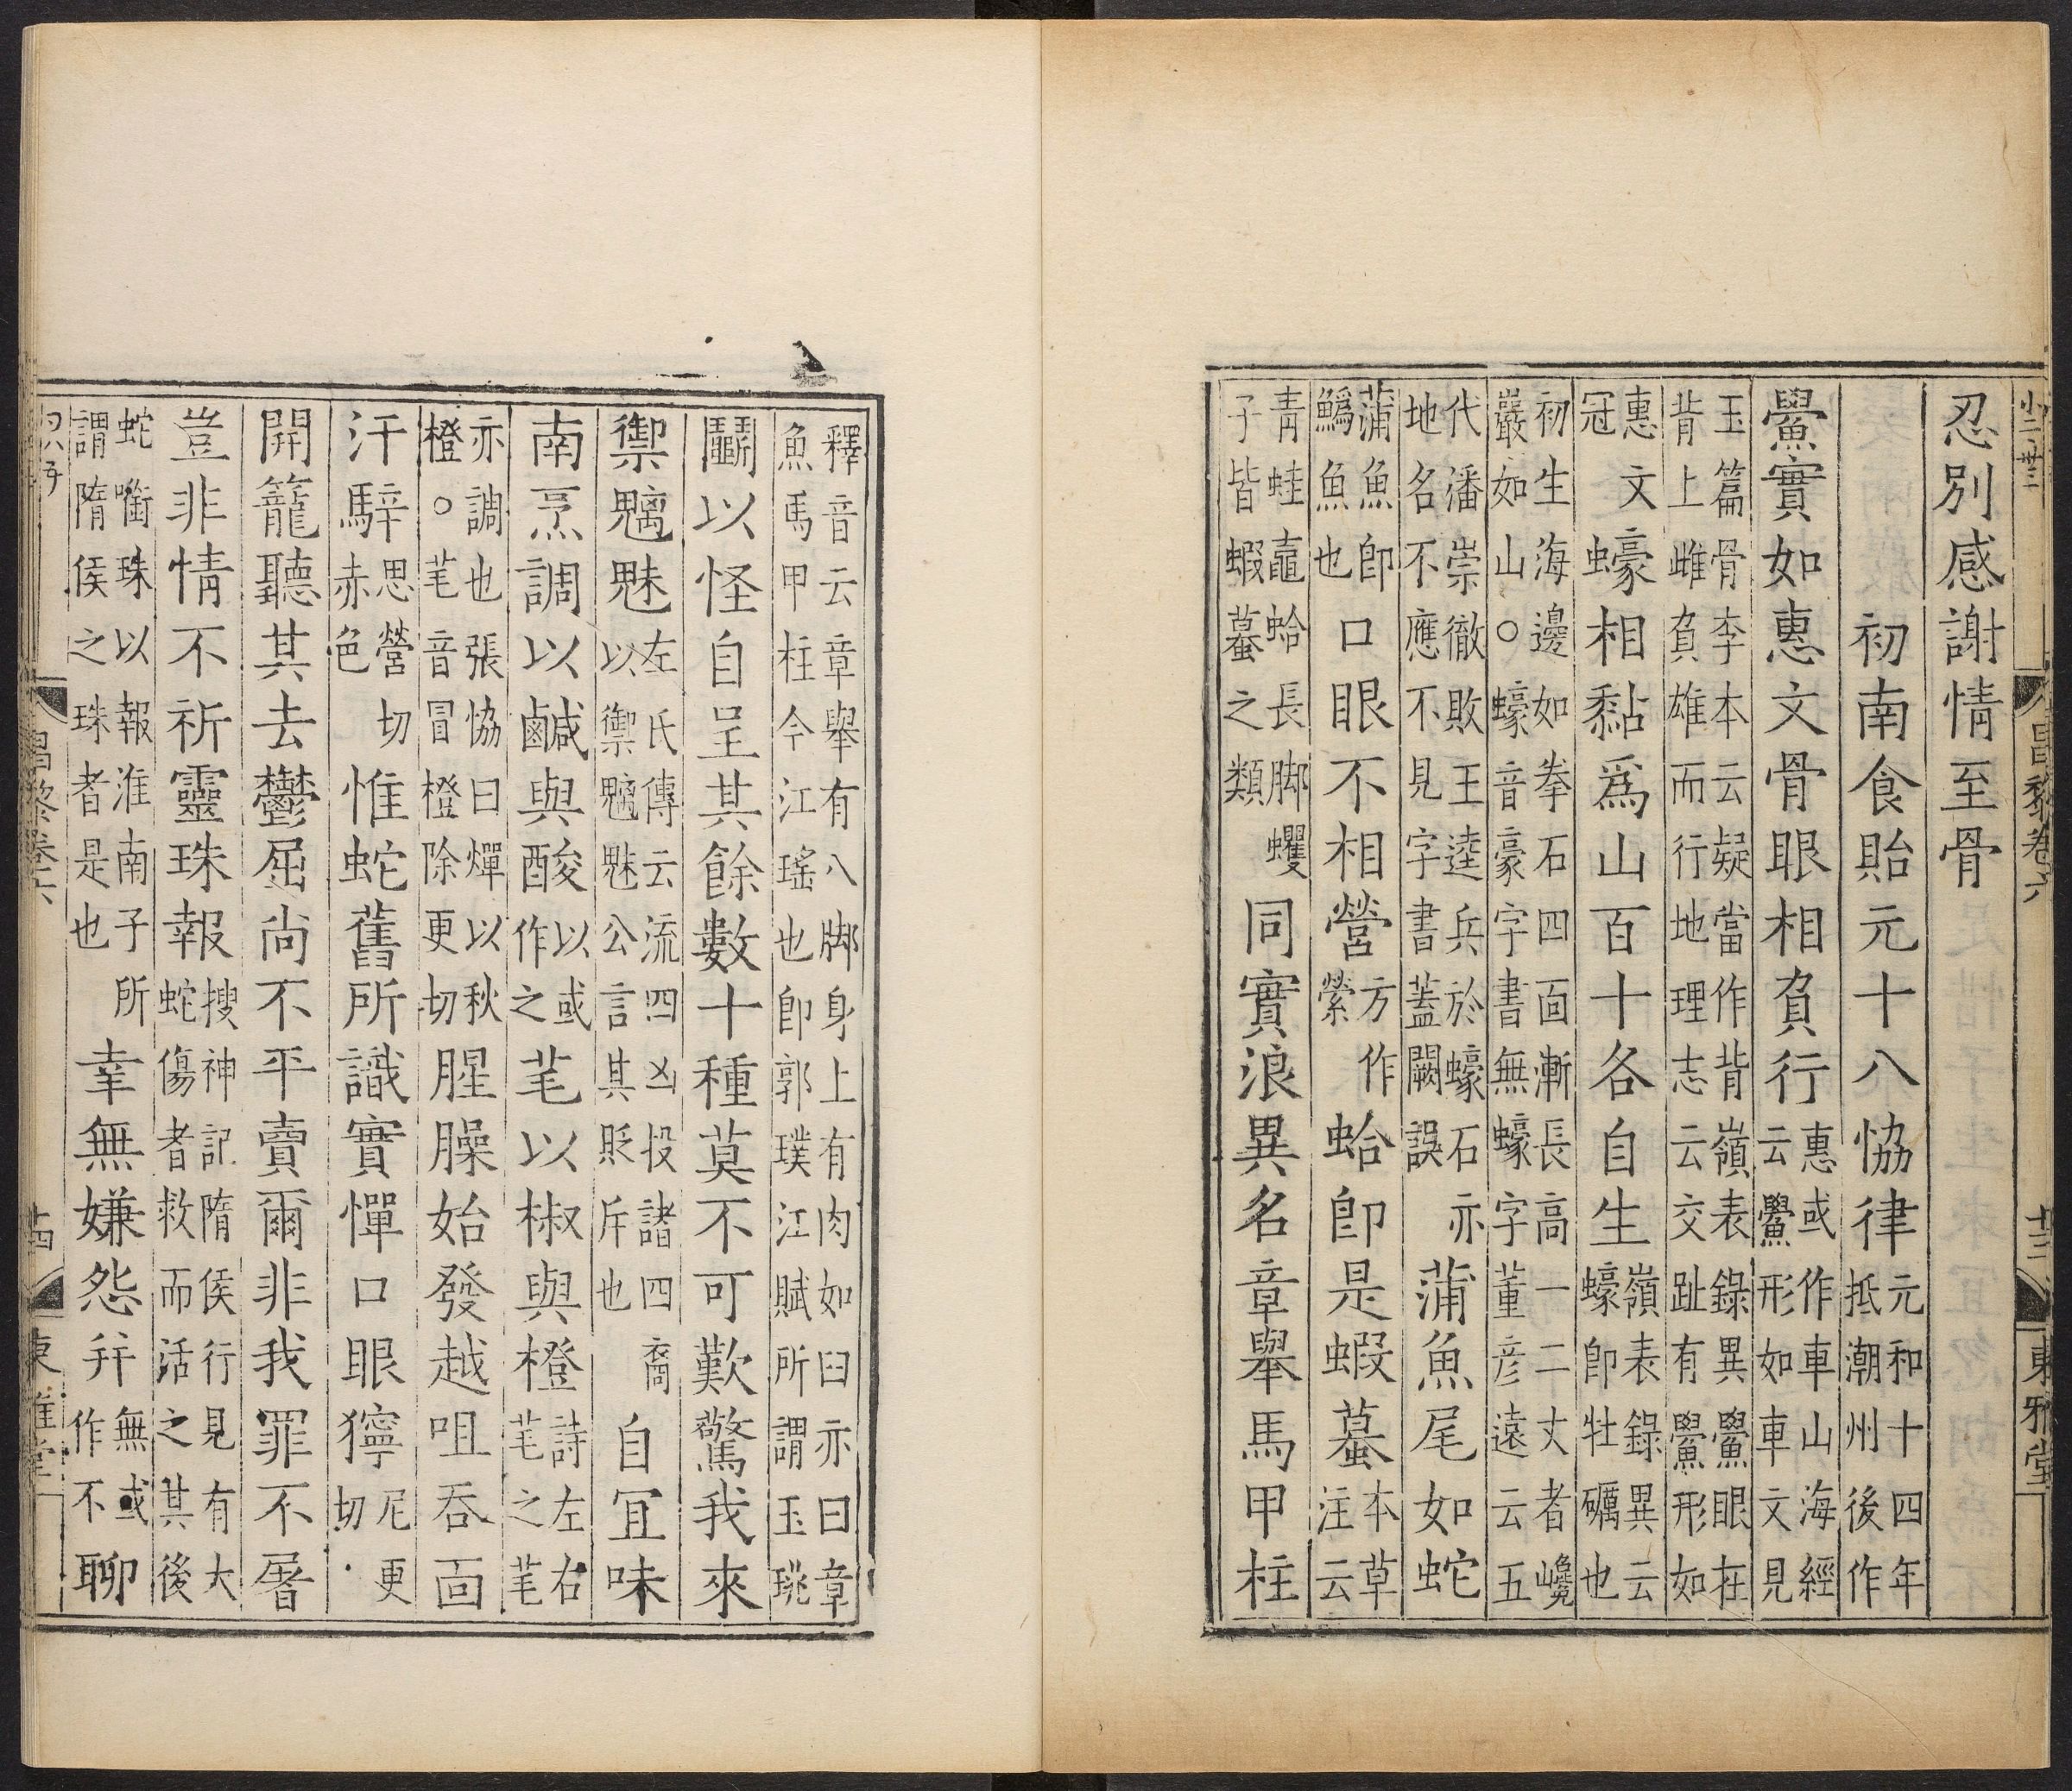 昌黎卷六　十三　東雅堂
忍別感謝情至骨
初南食貽元十八恊律元和十四年抵潮州後作
鱟實如惠文骨眼相負行惠或作車山海經云鱟形如車文見
玉篇骨李本云疑當作背嶺表錄異鱟眼在背上雌負雄而行地理志云交趾有鱟形如
惠文冠蠔相黏爲山百十各自生嶺表錄異云蠔卽牡礪也
初生海邊如拳石四面漸長高一二丈者巉巖如山○蠔音豪字書無蠔字董彥遠云五
代潘崇徹敗王逵兵於蠔石亦地名不應不見字書蓋闕誤蒲魚尾如蛇
蒲魚卽魚也口眼不相營方作縈蛤卽是蝦蟇本草注云
青蛙鼃蛤長脚蠼子皆蝦蟇之類同實浪異名章舉馬甲柱
釋音云章舉有八脚身上有肉如臼亦曰章魚馬甲柱今江瑤也卽郭璞江賦所謂玉珧
鬭以怪自呈其餘數十種莫不可歎驚我來
禦魑魅左氏傳云流四凶投諸四裔以禦魑魅公言其貶斥也自宜味
南烹調以鹹與酸以或作之芼以椒與橙詩左右芼之芼
亦調也張恊曰燀以秋橙○芼音冒橙除更切腥臊始發越咀吞面
汗騂思營切赤色惟蛇舊所識實憚口眼獰尼更切
開籠聽其去鬱屈尚不平賣爾非我罪不屠
豈非情不祈靈珠報搜神記隋侯行見有大蛇傷者救而活之其後
蛇㗸珠以報淮南子所謂隋侯之珠者是也幸無嫌怨幷無或作不聊
昌黎卷六　十四　東雅堂